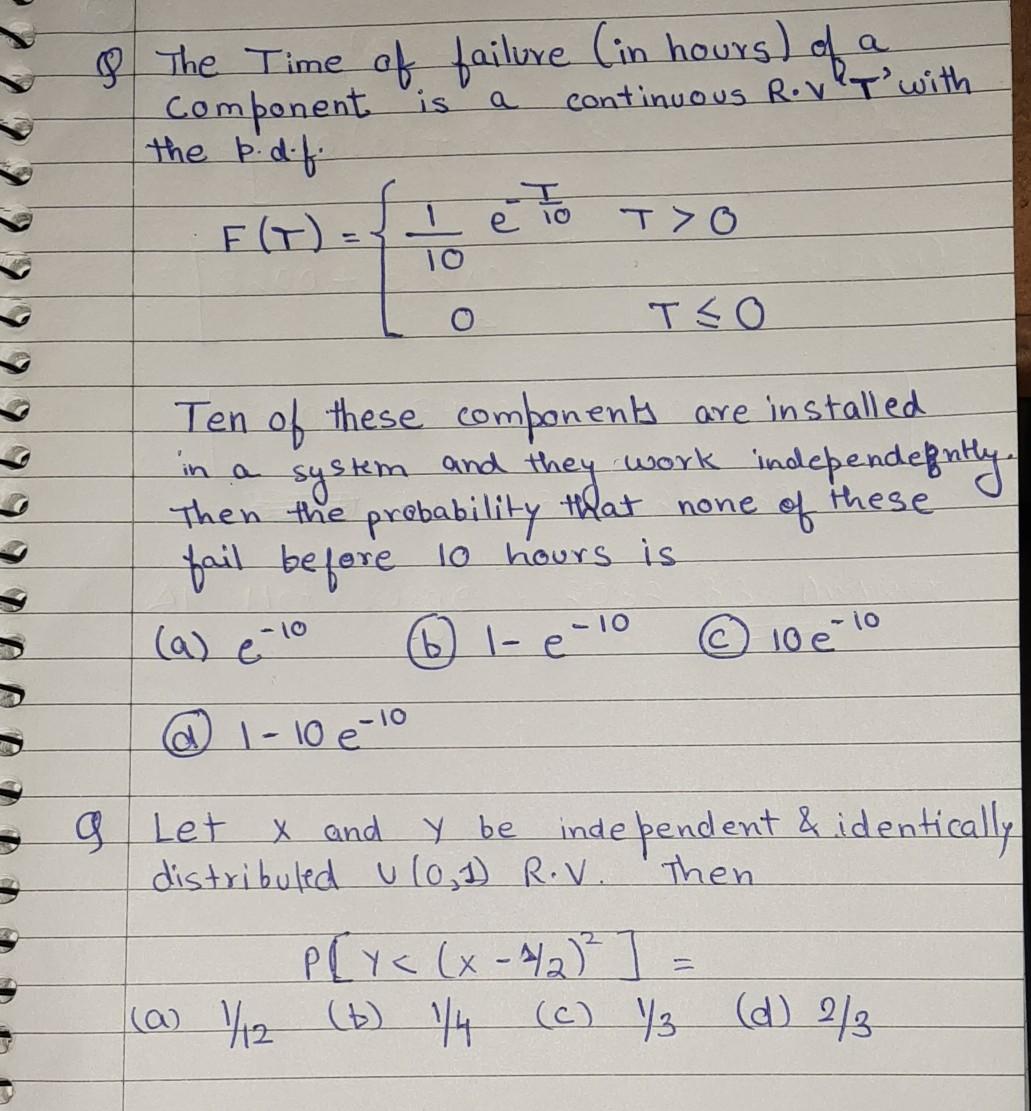 Q The Time of failure (in hours) of a
component is a continuous R.V 'T' with
the p.d.f.
F(T) = { 1/10 e^{-T/10} T > 0
0 T ≤ 0
Ten of these components are installed
in a system and they work independently.
Then the probability that none of these
fail before 10 hours is
(a) e^{-10} (b) 1- e^{-10} (c) 10 e^{-10}
(d) 1-10 e^{-10}
Q Let X and Y be independent & identically
distributed U(0,1) R.V. Then
P[Y < (X - 1/2)^2] =
(a) 1/12 (b) 1/4 (c) 1/3 (d) 2/3